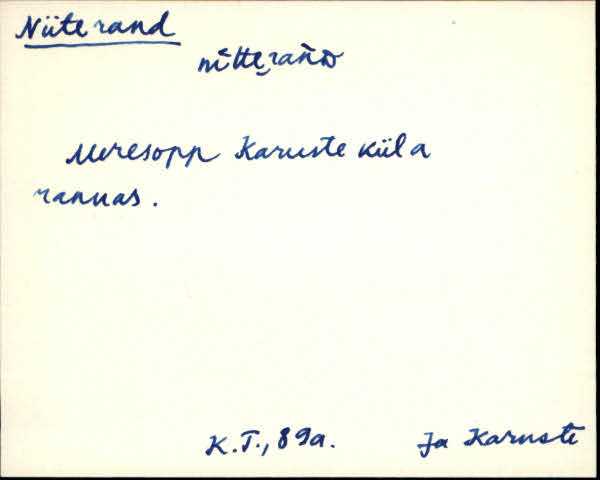 Niiterand
nīt̀te̮rañD
Meresopp Karuste küla
rannas.
K.T., 89a.
Ja Karuste